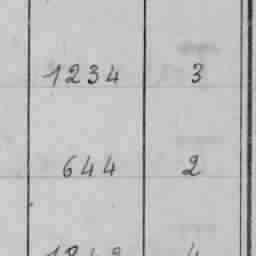 1234 3
644 2